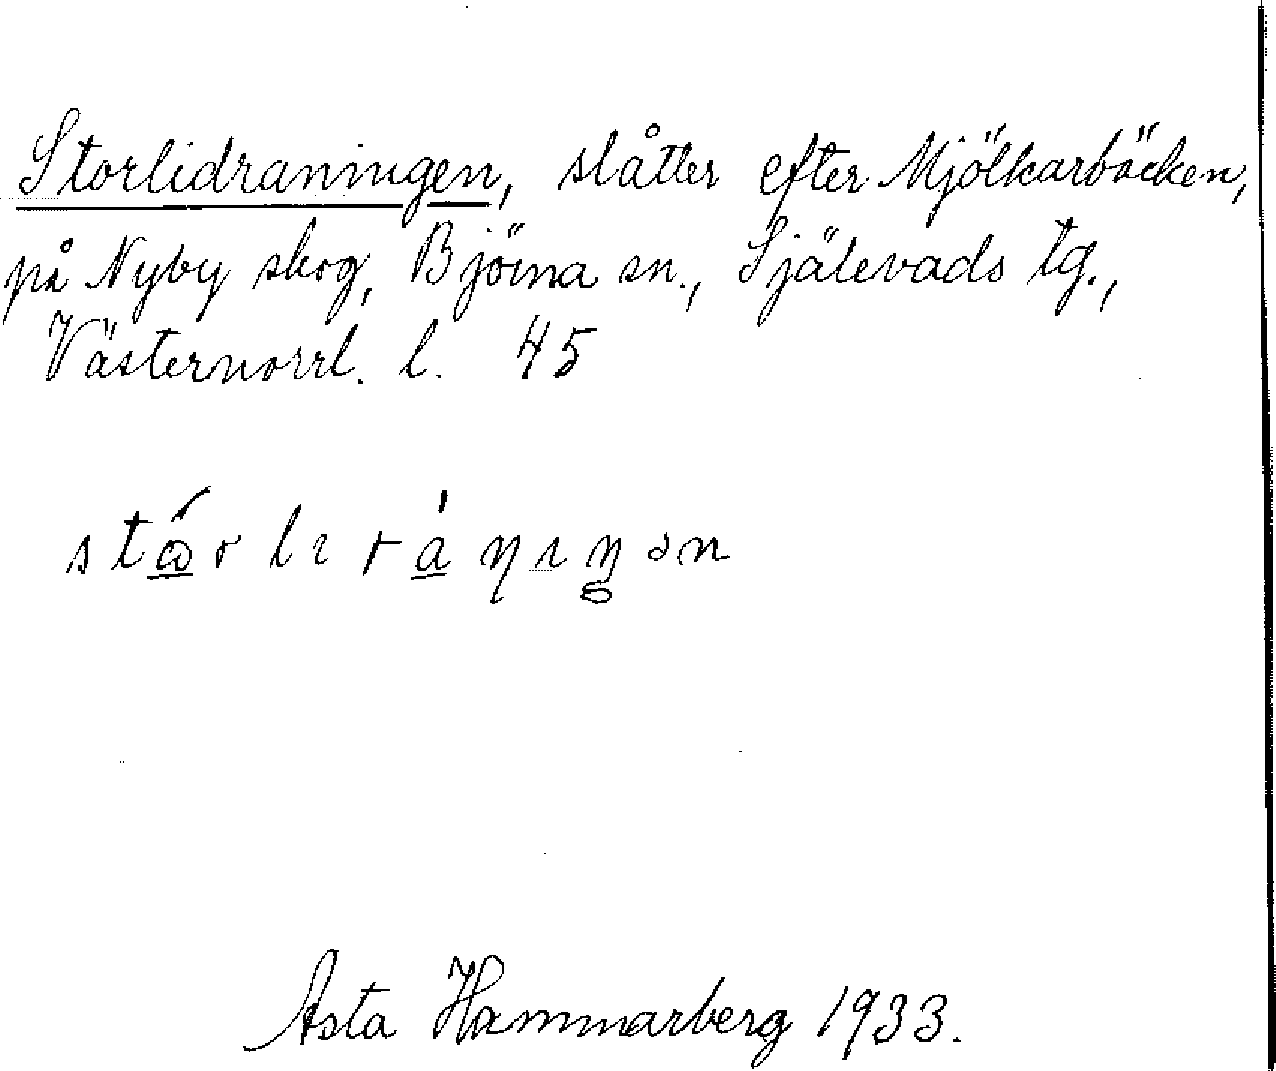 Storlidraningen, slåtter efter Mjölkarbäcken,
på Nyby skog, Björna sn., Själevads tg.,
Västernorrl. l. 45
Asta Hammarberg 1933.